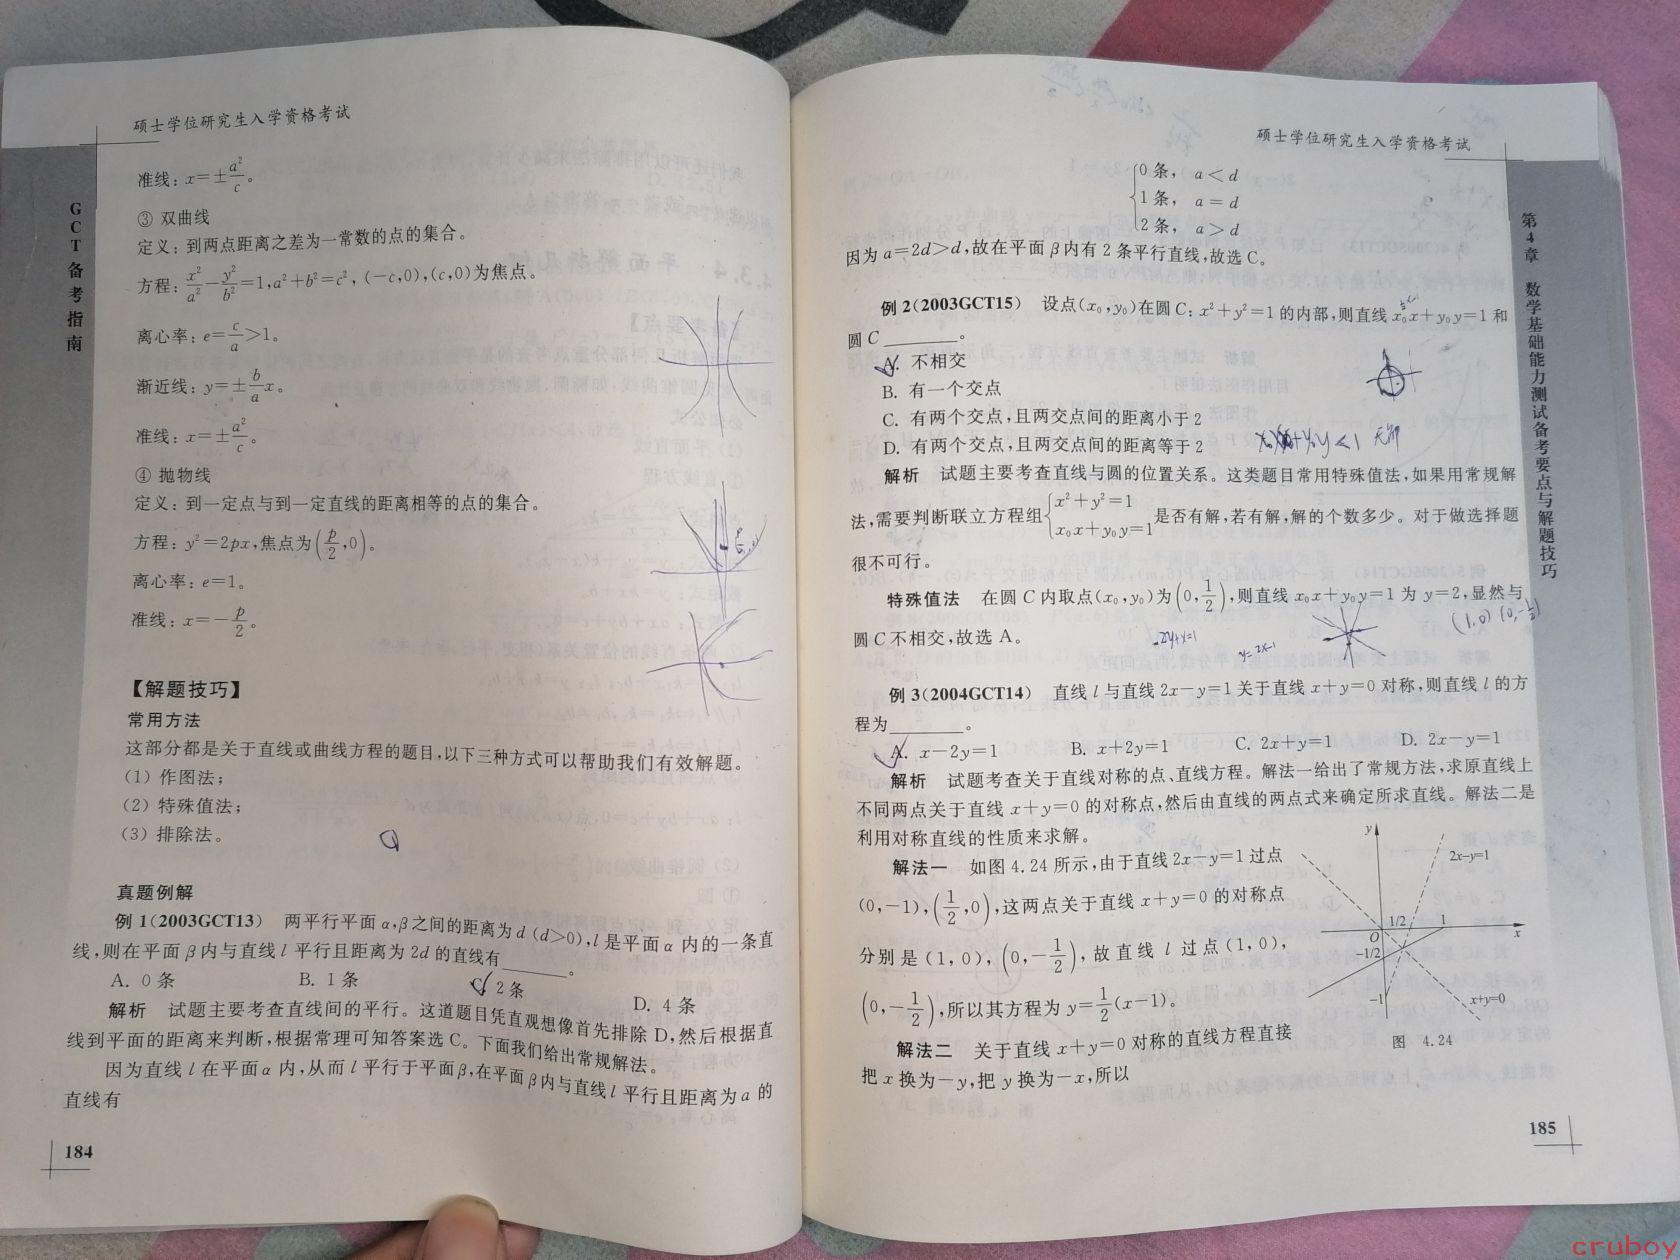 硕士学位研究生入学资格考试
GCT备考指南
准线：x=±a²/c。
③ 双曲线
定义：到两点距离之差为一常数的点的集合。
方程：x²/a²−y²/b²=1,a²+b²=c²，(−c,0),(c,0)为焦点。
离心率：e=c/a>1。
渐近线：y=±b/a x。
准线：x=±a²/c。
④ 抛物线
定义：到一定点与到一定直线的距离相等的点的集合。
方程：y²=2px,焦点为(p/2,0)。
离心率：e=1。
准线：x=−p/2。
【解题技巧】
常用方法
这部分都是关于直线或曲线方程的题目,以下三种方式可以帮助我们有效解题。
(1) 作图法；
(2) 特殊值法；
(3) 排除法。
真题例解
例 1(2003GCT13) 两平行平面 α,β之间的距离为 d (d>0),l 是平面 α 内的一条直
线,则在平面 β内与直线 l 平行且距离为 2d 的直线有______。
A. 0 条 B. 1 条 C. 2 条 D. 4 条
解析 试题主要考查直线间的平行。这道题目凭直观想像首先排除 D,然后根据直
线到平面的距离来判断,根据常理可知答案选 C。下面我们给出常规解法。
因为直线 l 在平面α 内,从而 l 平行于平面β,在平面 β内与直线 l 平行且距离为 a 的
直线有
184
硕士学位研究生入学资格考试
第4章 数学基础能力测试备考要点与解题技巧
{0 条, a<d
1 条, a=d
2 条, a>d
因为 a=2d>d,故在平面 β内有 2 条平行直线,故选 C。
例 2(2003GCT15) 设点(x₀,y₀)在圆 C：x²+y²=1 的内部,则直线 x₀x+y₀y=1 和
圆 C ______。
A. 不相交
B. 有一个交点
C. 有两个交点,且两交点间的距离小于 2
D. 有两个交点,且两交点间的距离等于 2
解析 试题主要考查直线与圆的位置关系。这类题目常用特殊值法,如果用常规解
法,需要判断联立方程组{x²+y²=1 x₀x+y₀y=1是否有解,若有解,解的个数多少。对于做选择题
很不可行。
特殊值法 在圆 C 内取点(x₀,y₀)为(0,1/2),则直线 x₀x+y₀y=1 为 y=2,显然与
圆 C 不相交,故选 A。
(1,0) (0,-1/2)
y=2x-1
例 3(2004GCT14) 直线 l 与直线 2x−y=1 关于直线 x+y=0 对称,则直线 l 的方
程为______。
A. x−2y=1 B. x+2y=1 C. 2x+y=1 D. 2x−y=1
解析 试题考查关于直线对称的点、直线方程。解法一给出了常规方法,求原直线上
不同两点关于直线 x+y=0 的对称点,然后由直线的两点式来确定所求直线。解法二是
利用对称直线的性质来求解。
解法一 如图 4.24 所示,由于直线 2x−y=1 过点
(0,−1),(1/2,0),这两点关于直线 x+y=0 的对称点
分别是(1,0),(0,−1/2),故直线 l 过点(1,0),
(0,−1/2),所以其方程为 y=1/2(x−1)。
解法二 关于直线 x+y=0 对称的直线方程直接
把 x 换为−y,把 y 换为−x,所以
y
2x−y=1
1/2
1
O
x
−1/2
−1
x+y=0
图 4.24
185
cruboy